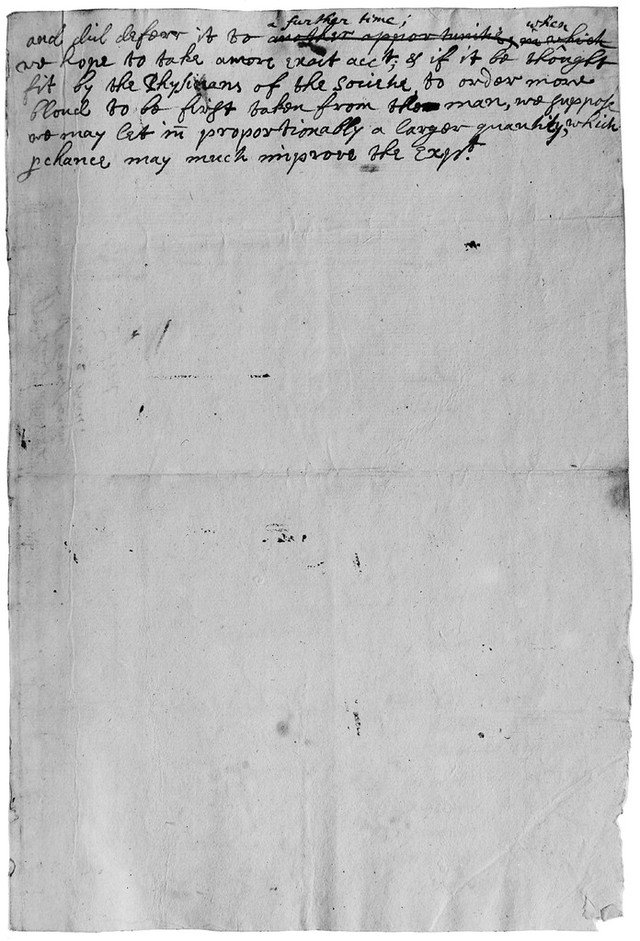 a further time; when
and did deferr it to another opportunitie, in which
we hope to take a more exact acct; & if it be thought
fit by the Physicians of the Societie, to order more
bloud to be first taken from the man, we suppose
we may let in proportionably a larger quantity, which
pchance may much improve the Expt.